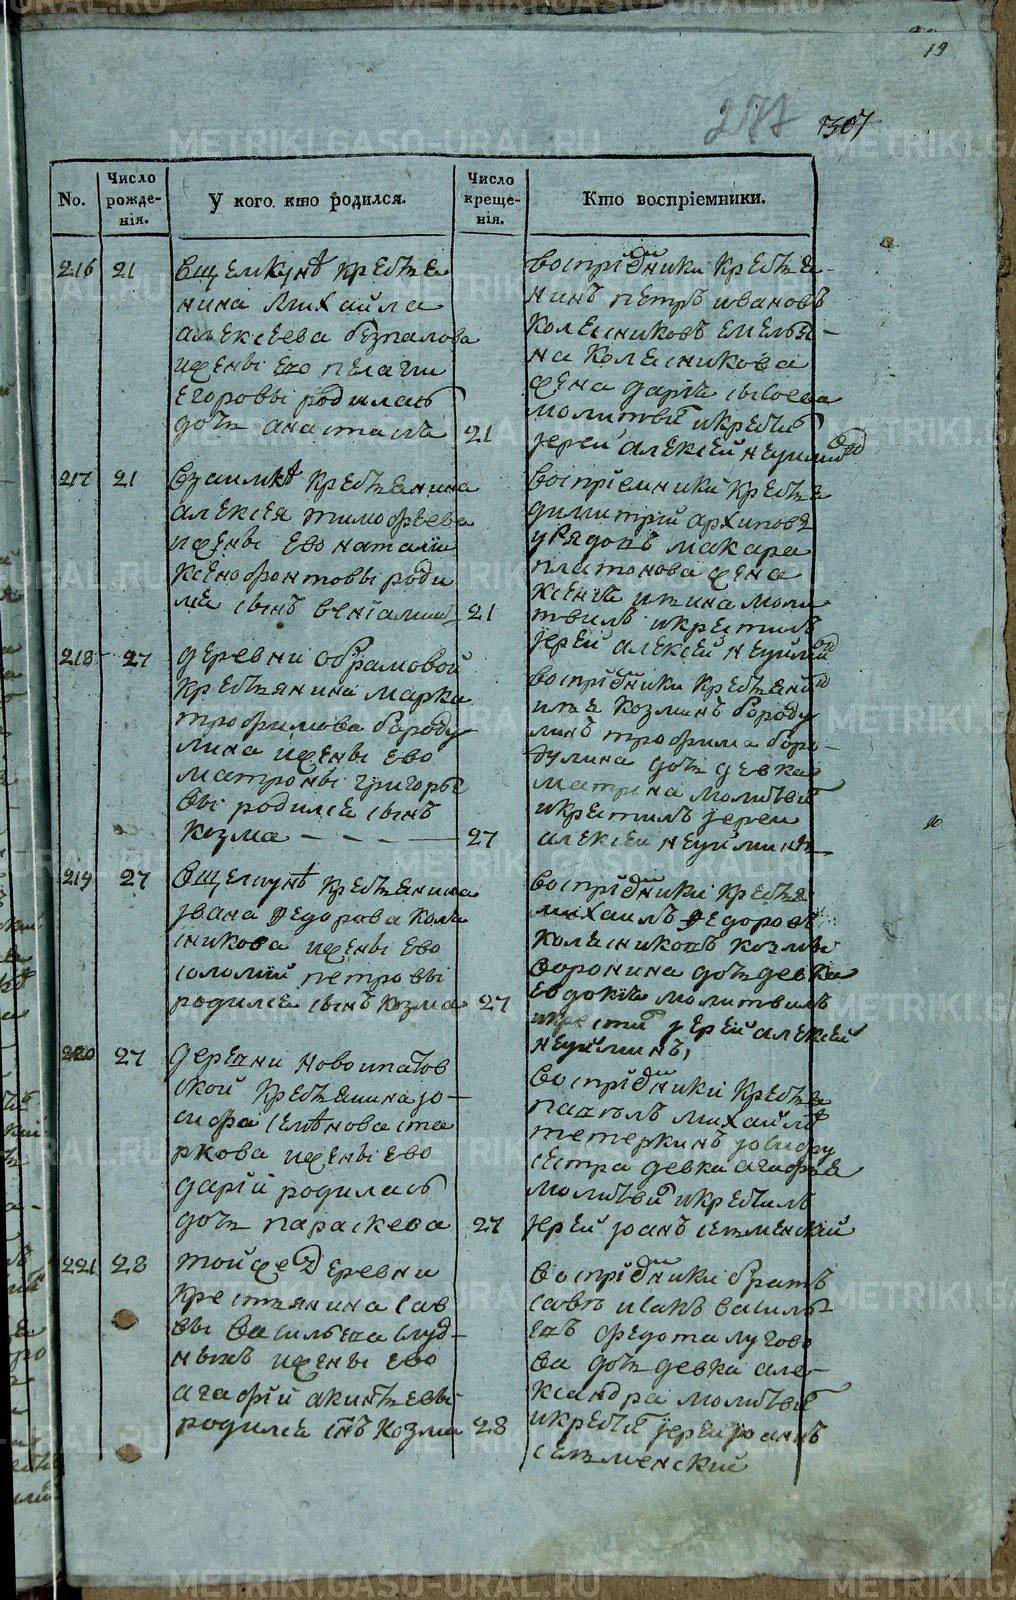 19
277 307
No.
Число рожденія.
У кого кто родился.
Число крещенія.
Кто воспріемники.
216 21
вщелкунѣ крестьѧ
нина михаила
алексеева безпалова
ижены его пелагеи
егоровы родилась
дочь анастасья 21
воспріемники крестья-
нинъ петръ ивановъ
колесниковъ емелья-
на колесникова
жена дарья сысоева
молитвил икрестил
іерей алексей неуимин
217 21
взаимкѣ крестьянина
алексея тимофеева
ижены ево наталіи
ксенофонтовы роди
лсѧ сынъ веніамин 21
воспріемники крестья
димитрій архипов
урядовъ макара
платонова жена
ксенія молитвилъ икрестилъ
іерей алексей неуймин
218 27
деревни абрамовой
крестьянина марка
трофимова бороду
лина ижены ево
матроны григорье
вы родился сынъ
козма 27
воспріемники крестьянин
козминъ бороду
линъ трофима боро-
дулина дочь девка
матрена молитвил
икрестилъ іереи
алексеи неуиминъ
219 27
вщелкунѣ крестьянина
івана федорова коле
сникова ижены ево
соломіи петровы
родился сынъ козма 27
воспріемники крестья
михаилъ федоровъ
колесниковъ козмы
воронина дочь девка
евдокія молитвилъ
икрестил іерей алексей
неуйминъ,
220 27
деревни новоипатов
ской крестьянина іо-
сифа семенова ста
ркова ижены ево
дарій родилась
дочь параскева 27
воспріемники крестья
павелъ михайлов
тетеркинъ іосифу
сестра девка агафья
молитвил икрестилъ
іерей іоанъ селменскій
221 28
тойже деревни
крестьянина сав
вы васильева слуд-
ныхъ ижены ево
агафіи акинѳеевы
родился снъ козма 28
воспріемники братъ
савы исакъ василь-
евъ федота лугово
ва дочь девка але-
ксандра молитвил
икрестил іереи іоаннъ
селменский
METRIKI.GASO-URAL.RU